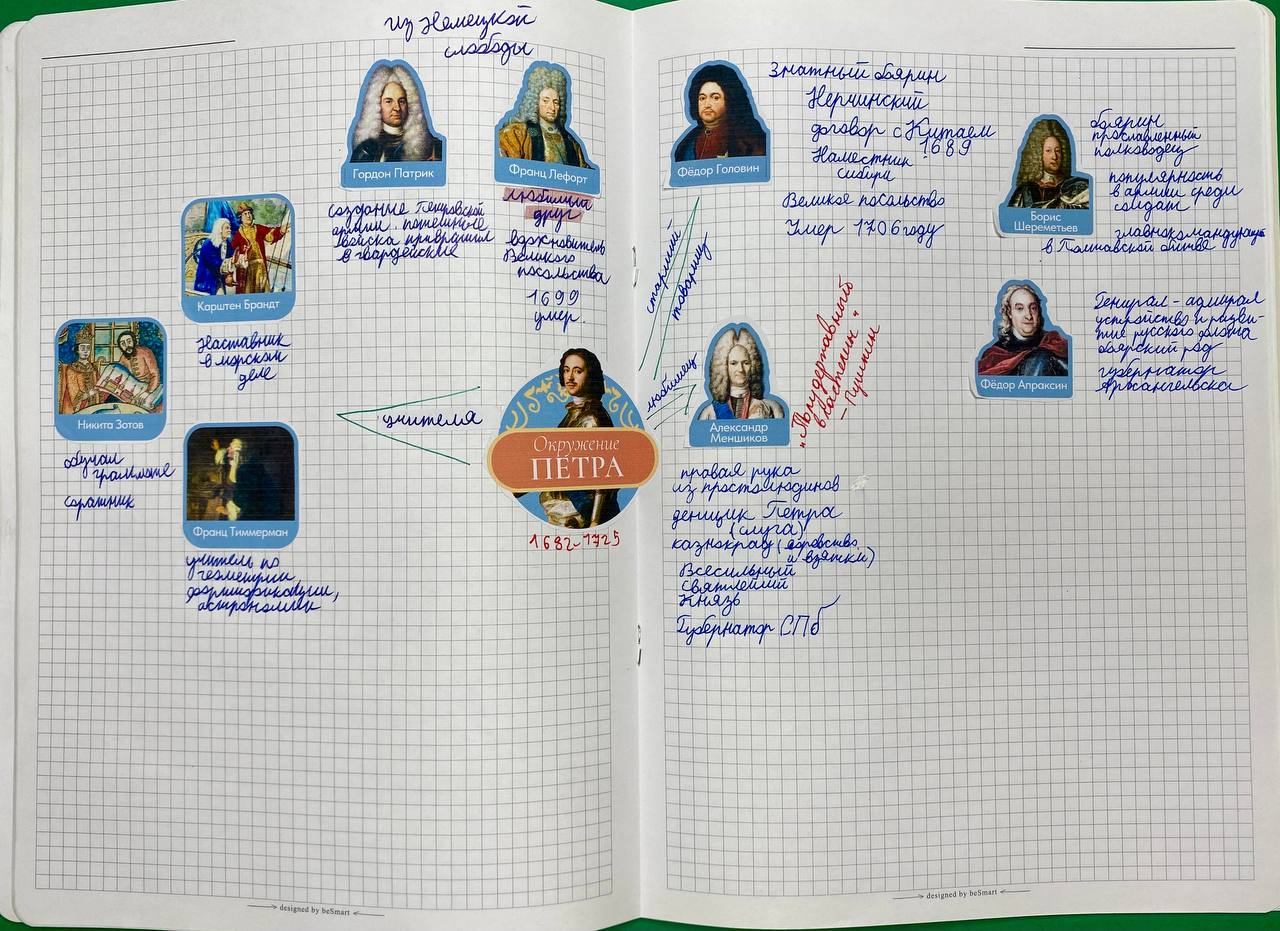 из Немецкой
слободы
Гордон Патрик
создание Петровской
армии. потешные
войска превратил
в гвардейские
Франц Лефорт
любимый
друг
вдохновитель
Великого
посольства
1699
умер.
Карштен Брандт
Наставник
в морском
деле
Никита Зотов
обучал
грамоте
соратник
Франц Тиммерман
учитель по
геометрии,
фортификации,
астрономии
учителя
Окружение
ПЕТРА
1682-1725
Фёдор Головин
Знатный боярин
Нерчинский
договор с Китаем
1689
Наместник
Сибири
Великое посольство
Умер 1706 году
старший
товарищ
Борис
Шереметьев
боярин
прославленный
полководец
популярность
в армии среди
солдат
главнокомандующий
в Полтавской битве
Фёдор Апраксин
Генирал-адмирал
устройство и разви-
тие русского флота
боярский род
губернатор
Архангельска
любимец
Александр
Меншиков
"Полудержавный
властелин"
- Пушкин
правая рука
из простолюдинов
денщик Петра
(слуга)
казнокрад (воровство
и взятки)
Всесильный
светлейший
Князь
Губернатор СПб
designed by beSmart
designed by beSmart